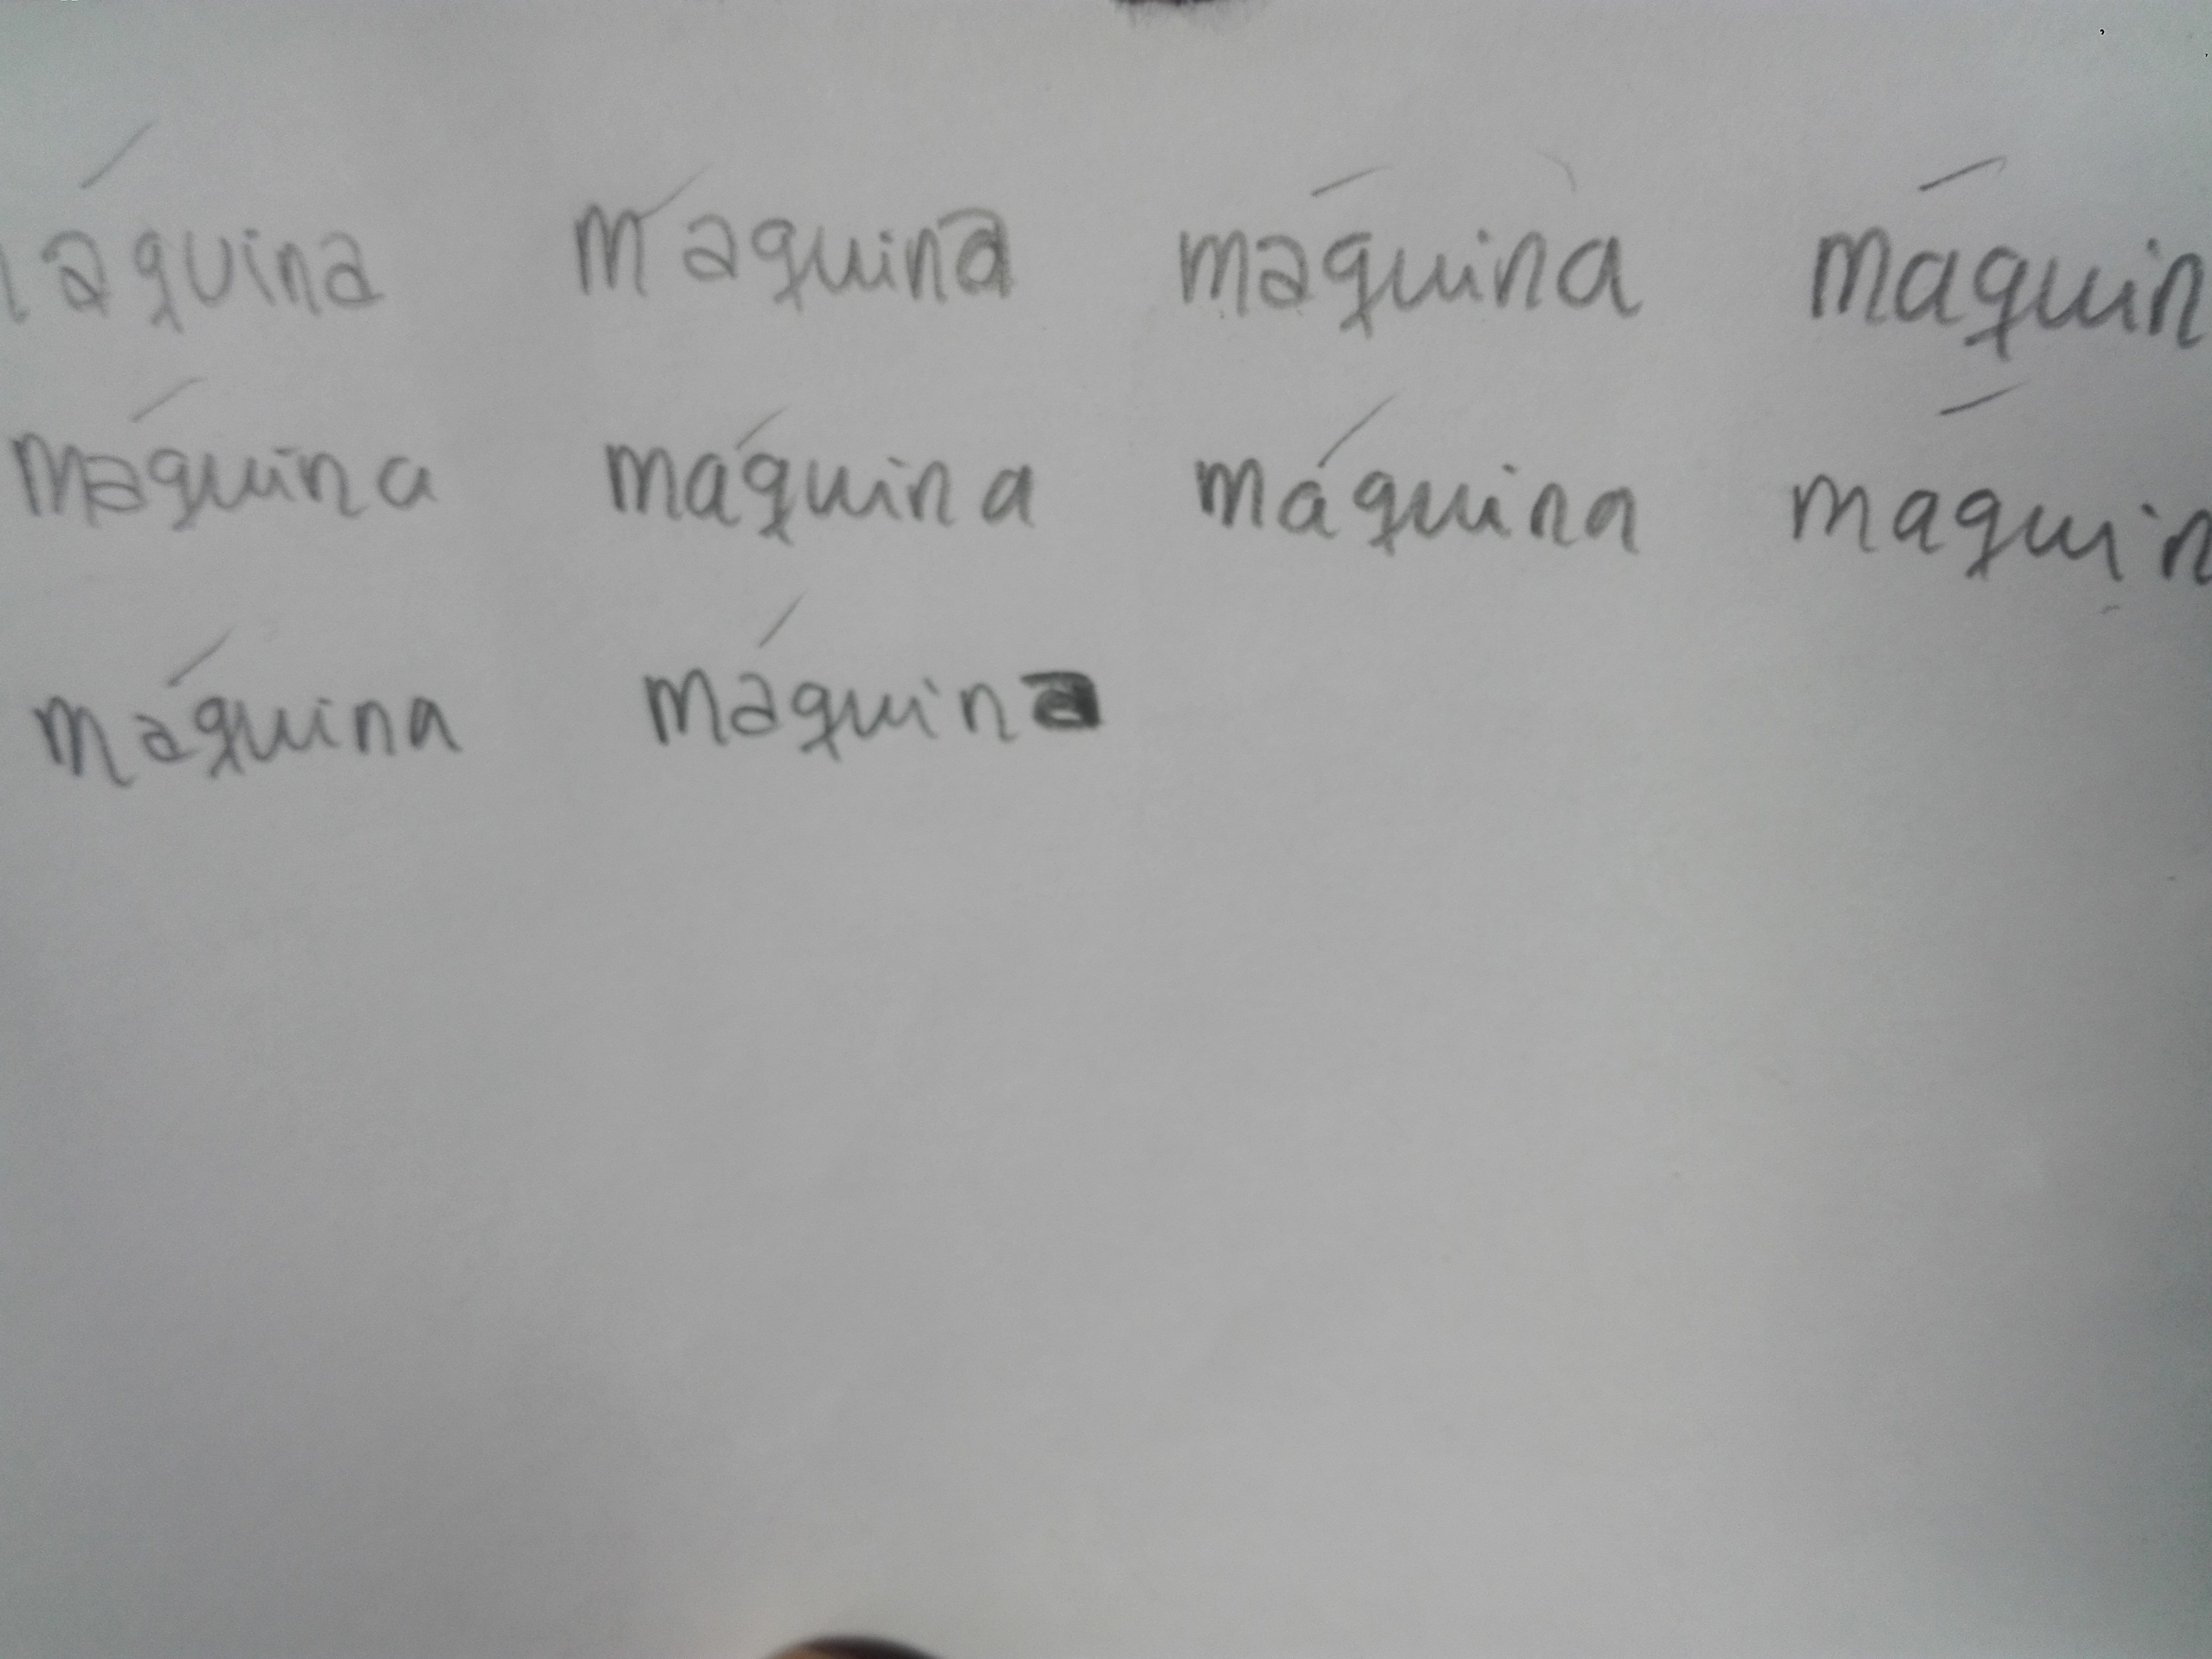 áquina máquina máquina máquin
máquina máquina máquina máquin
máquina máquina